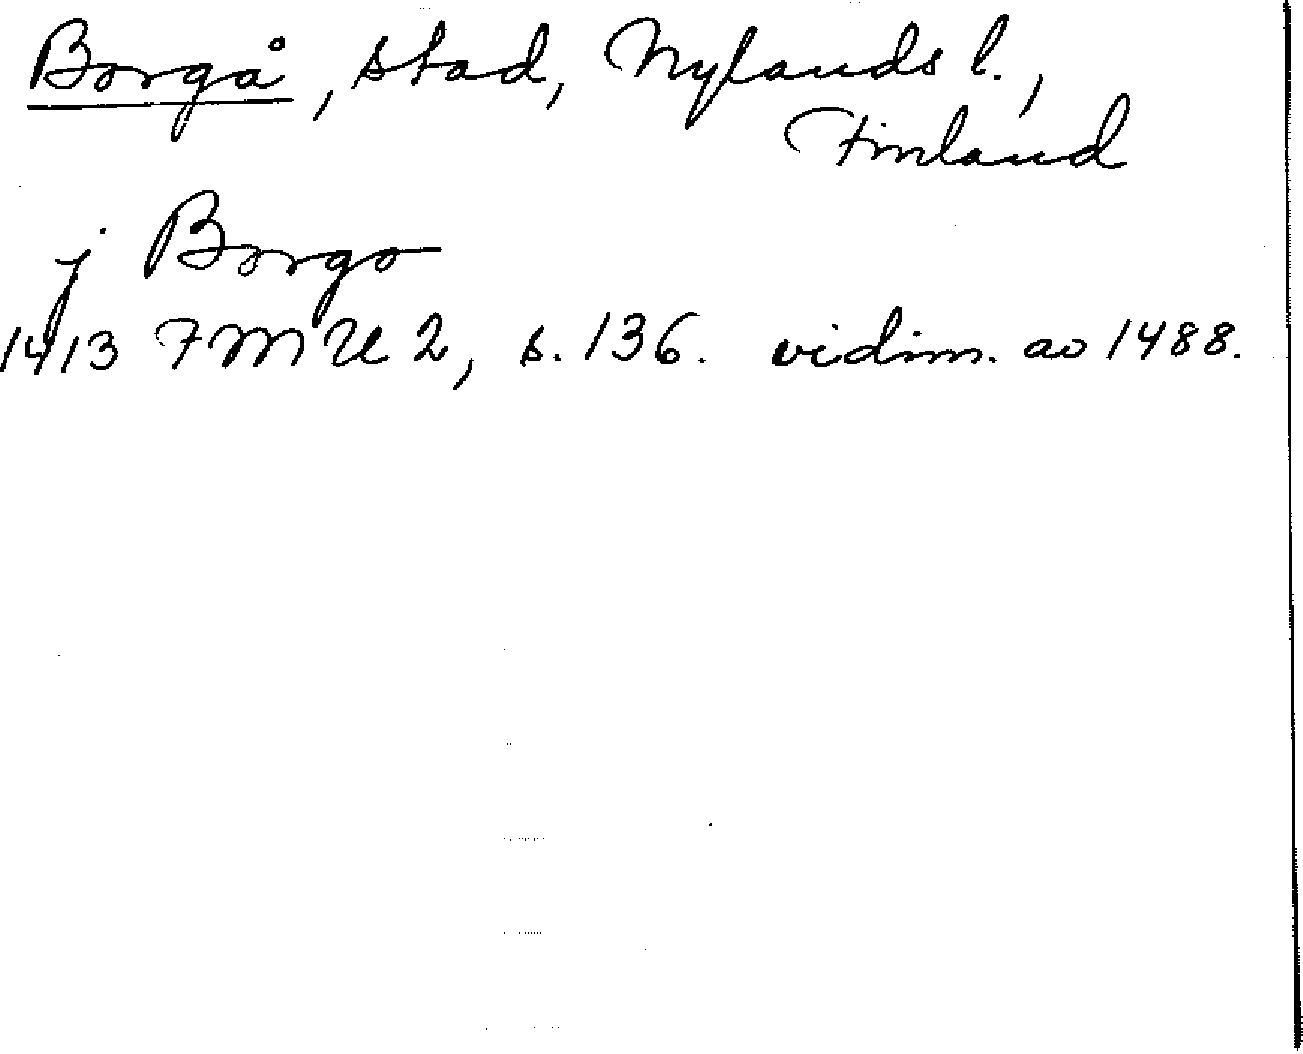 Borgå, stad, Nylands l.,
Finland
j Borgo
1413 FMU 2, s. 136. vidim. ao 1488.